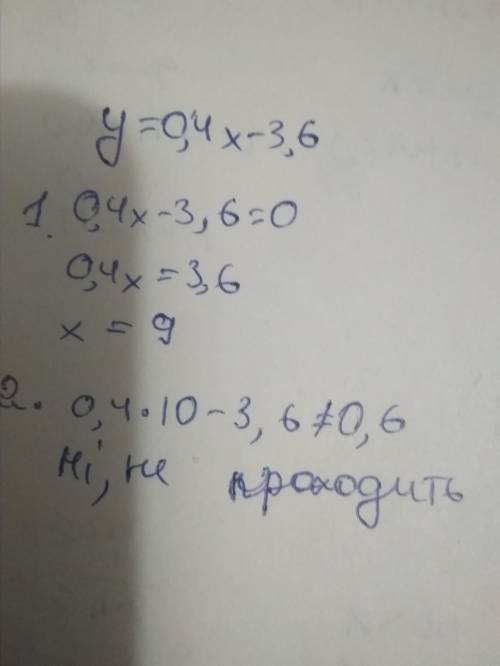 y=0,4x-3,6
1. 0,4x-3,6=0
0,4x=3,6
x=9
2. 0,4·10-3,6≠0,6
Ні, не проходить